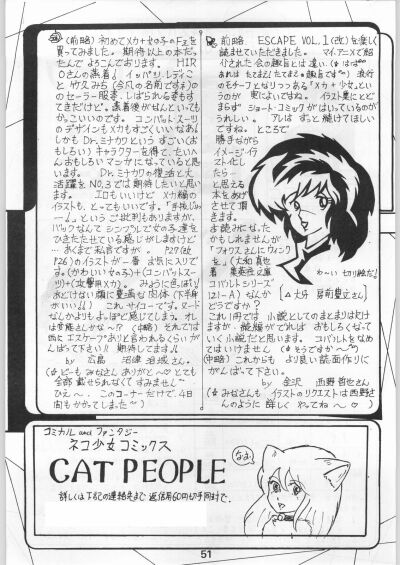 (前略)初めてメカ+女の子のFzを
買ってみました。期待以上の本だっ
たんでよろこんでおります。HIR
Oさんの
イッパツ・レディこと
のセーラー服姿、しばられる姿もす
てきだけど。
かっこいいのです。コンバット・スーツ
のデザインもメカもすごくいいなあ!
しかもDr.ミナカワというすごい(お
もしろい)キャラクターを得て、たいへ
んおもしろいマンガになっていると思
います。Dr.ミナカワの復活と大
活躍をNO.3では期待したいと思い
ます。エロもいいけどメカ編の
イラストも、とってもいいです。
ー」というご批判もありますが、
バックなんてシンプルで女の子達を
ひきたたせている感じがしますけど
…あくまで私言ですが。P27(P
P26)のイラストが一番お気に入りで
す。(かわいい女の子)+(コンバットスー
ツ)+(攻撃用メカ)。
がいい。)これサイコーです。ヌード
なんかよりも、よっぽど感じてしまう。オレ
は変態さんかな〜?(中略)それでは
西の"エスケープ"ありと言われるくらいがん
ばって下さい!!期待してます!!
by 広島
(☆どーもみなさんありがと〜♡とても
全部載せられなくてすみません
ひえ〜、このコーナーだけで、4日
間もかかってしまった〜)
前略 ESCAPE VOL.1(改)を楽し
く読ませていただきました。マイアニメで紹
介された会の趣旨とは違い、(☆はは
あれはたてまえたてまえ趣旨です)流行
のモチーフとなりつつある「メカ+少女」という
のが更によいですね。イラスト集にとど
まらずショート・コミックがはいっているのが
うれしい。アレはずっと続けてほしい
ですね。ところで
勝手ながら
イメージ・イラ
スト化し
たら…
と思える
本をあげ
させて頂
きます。
お読みになった
かもしれませんが
「フォックスさんにウィンク
を」(大和真也
著 集英社文庫
コバルトシリーズ
121-A)なんか
どうですか?
わ〜い切り絵だ!
これ1冊では小説としてのまとまりは欠け
ますが、続編がでればおもしろくなって
いく小説だと思います。コバルトをなめ
てはいけません(☆そうですか〜)
(中略)これからもより良い誌面作りに
がんばって下さい。
by 金沢 西野哲也さん
(☆みなさんもイラストのリクエストは西野さ
んのように詳しくやってね〜♡)
コミカル and ファンタジー
ネコ少女コミックス
CAT PEOPLE
詳しくは下記の連絡先まで返信用60円切手同封で。
なぉ♡
51